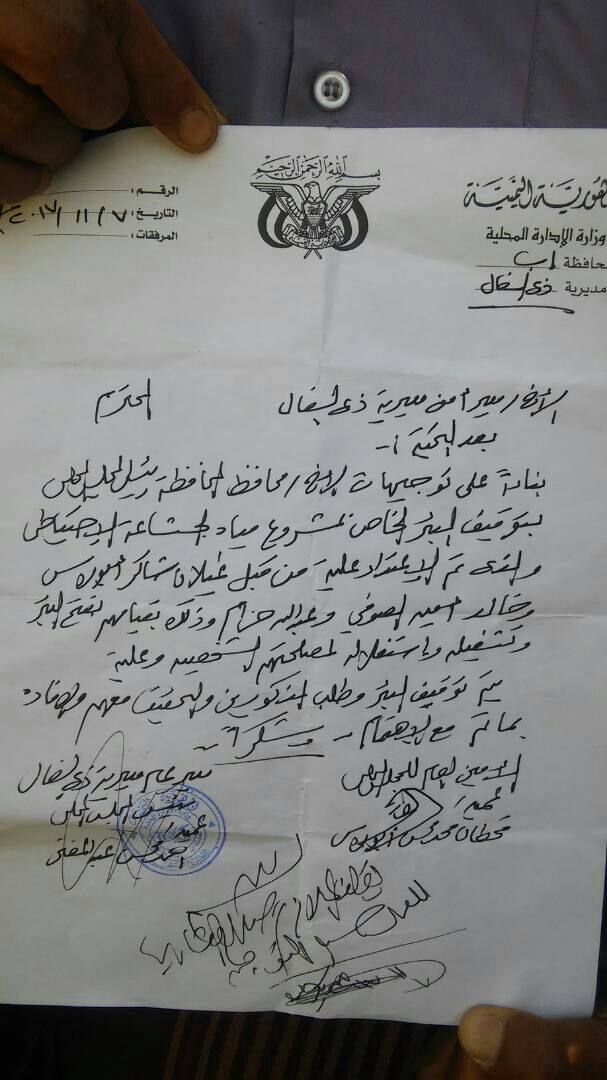 بسم الله الرحمن الرحيم
الجمهورية اليمنية
وزارة الإدارة المحلية
محافظة إب
مديرية ذي السفال
الرقم :
التاريخ : ٢٠١٧/١١/٧
المرفقات :
الأخ / مدير أمن مديرية ذي السفال المحترم
بعد التحية :-
بناءً على توجيهات الأخ / محافظ المحافظة رئيس المجلس المحلي
بتوقيف البئر الخاص بمشروع مياه الاحتياطي
والذي تم الاعتداء عليه من قبل غيلان شاكر
وخالد أمين الصوفي وعبدالله حزام وذلك بقيامهم بفتح البئر
وتشغيله واستغلاله لمصلحتهم الشخصية وعليه
يتم توقيف البئر وطلب المذكورين والتحقيق معهم والإفادة
بما تم مع الاهتمام - وشكراً -
الأمين العام للمجلس المحلي
قحطان محمد
مدير عام مديرية ذي السفال
رئيس المجلس المحلي
عميد /